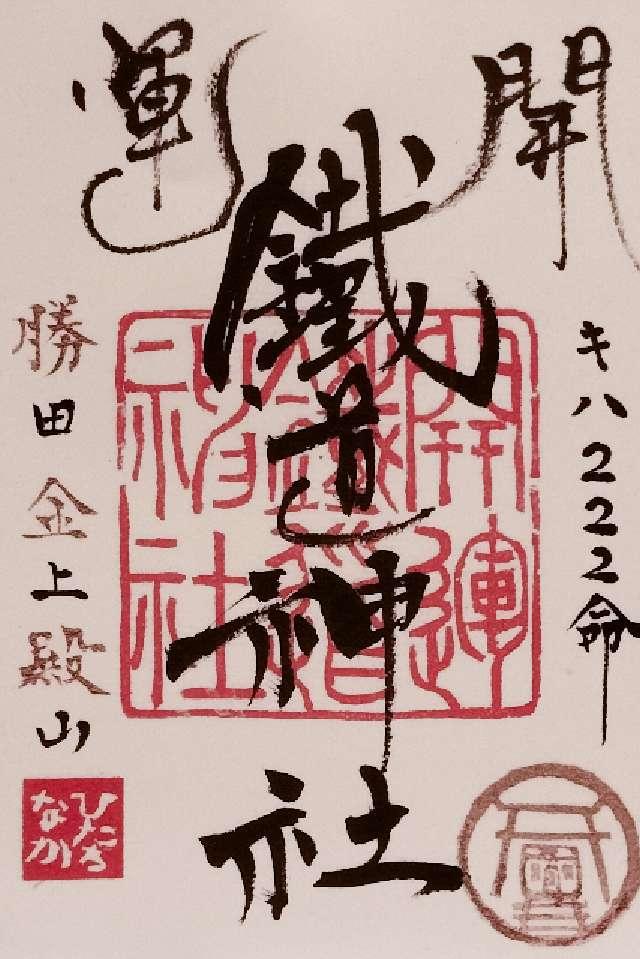 開運
キハ222命
鐵道神社
開運
鐵道
神社
勝田金上殿山
ひたち
なか